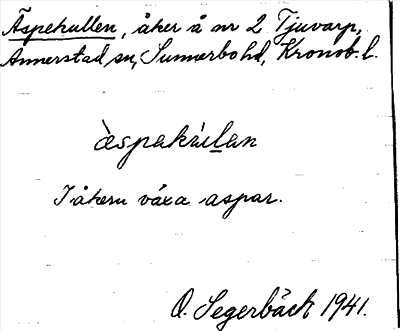 Äspekullen, åker å nr 2 Tjuvarp,
Annerstad sn, Sunnerbo hd, Kronob. l.
I åkern växa aspar.
O. Segerbäck 1941.